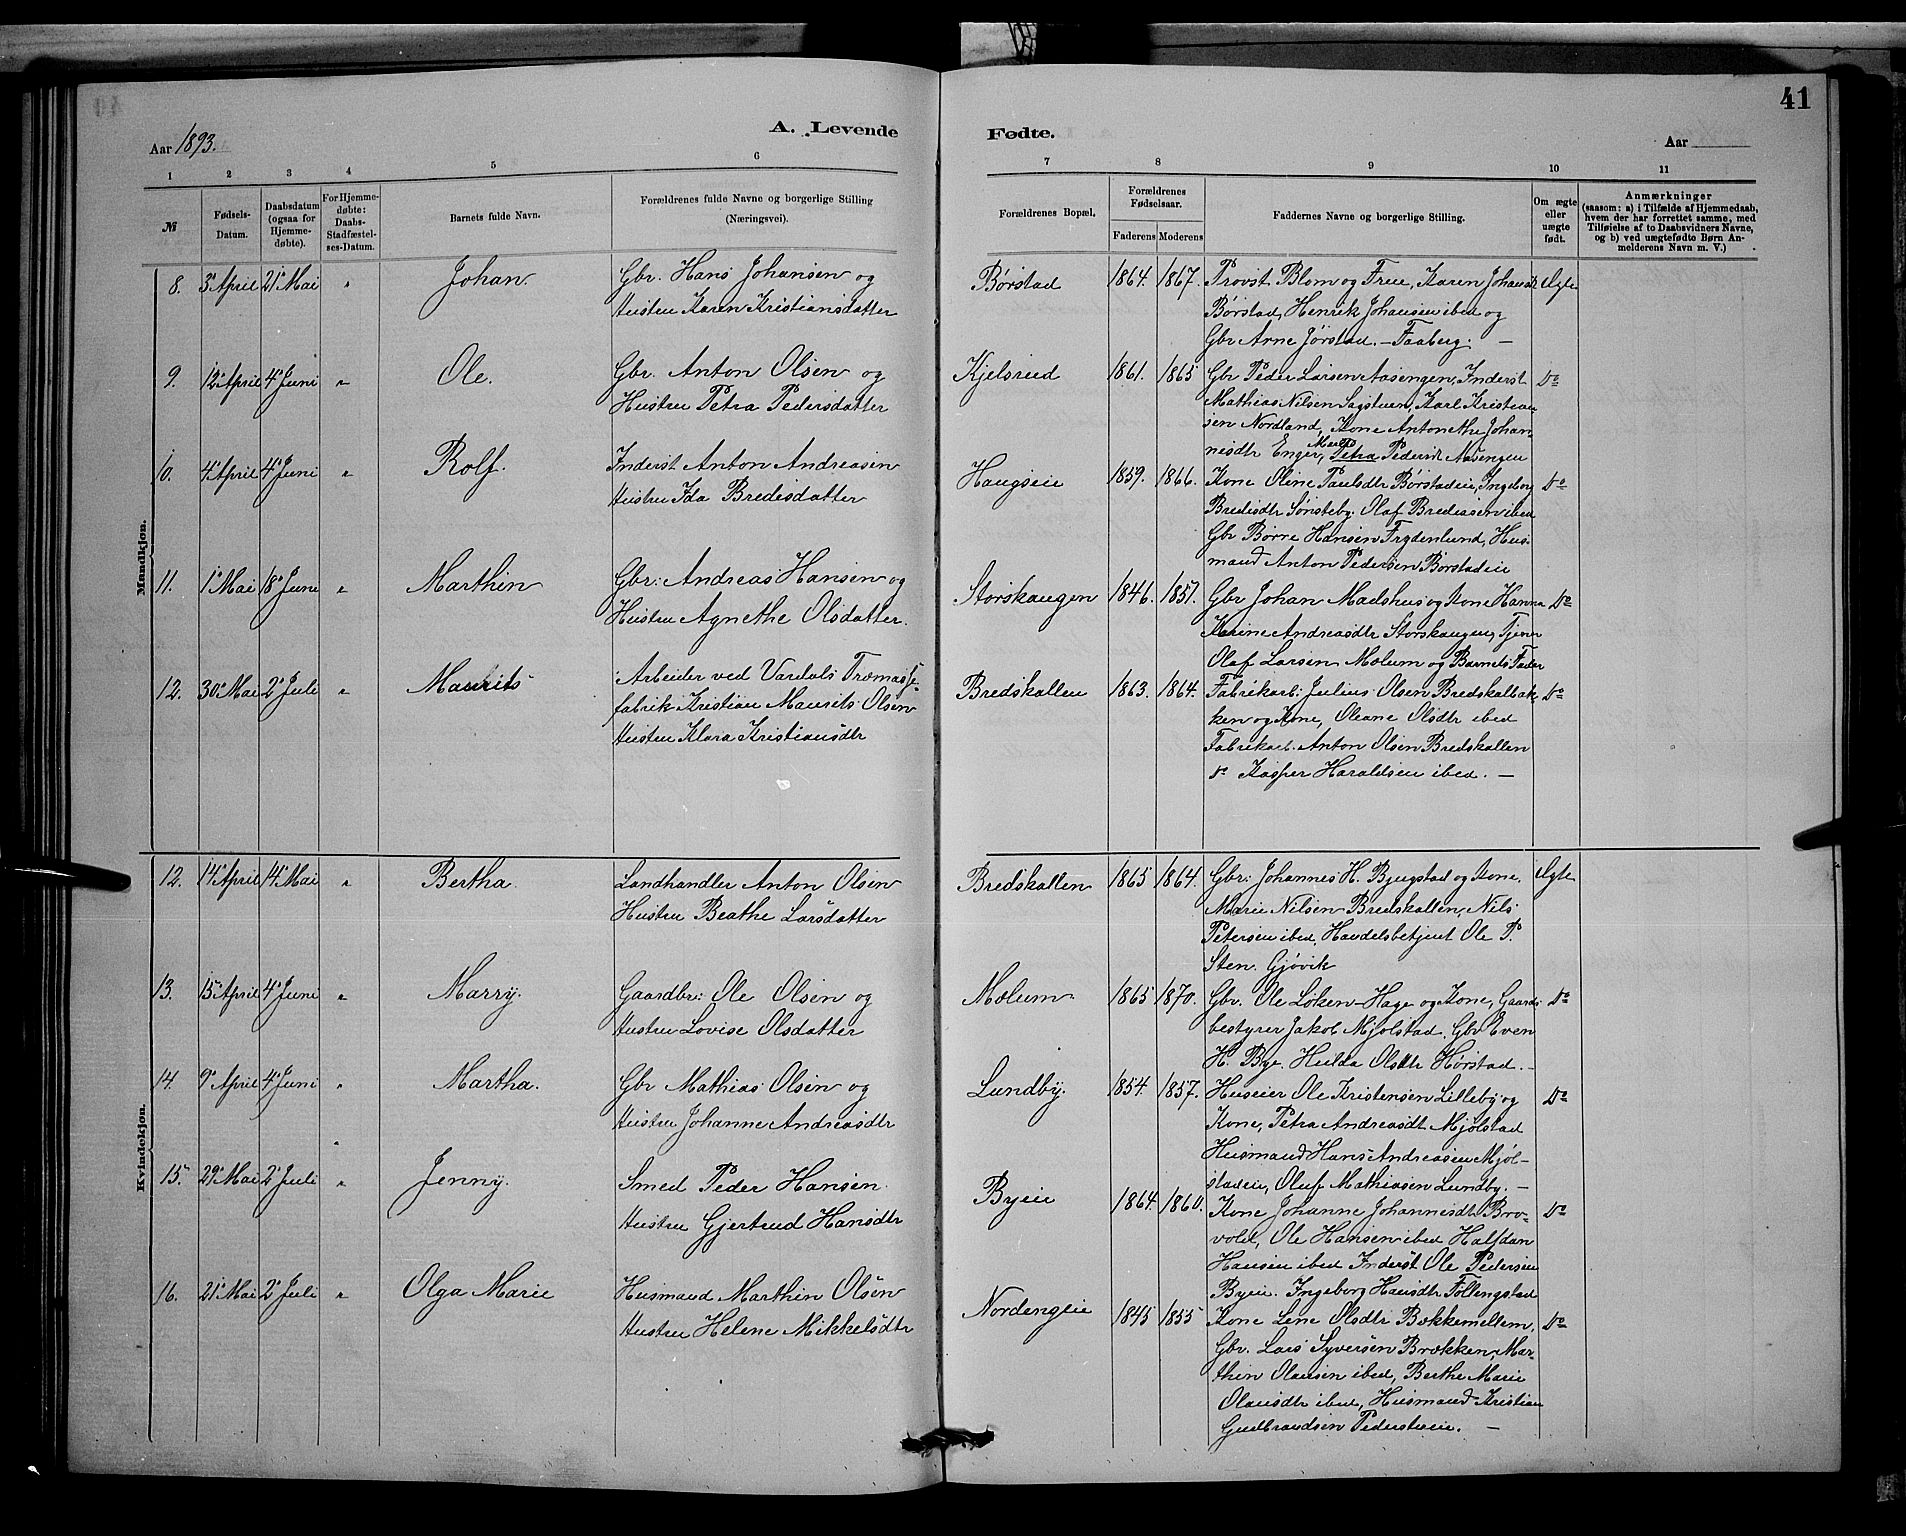 41
Aar 1893.
A. Levende
Fødte.
Aar
1 2 3 4 5 6
7 8 9 10 11
№
Fødsels-
Datum.
Daabsdatum
(ogsaa for
Hjemme-
døbte).
For Hjemme-
døbte:
Daabs-
Stadfæstel-
ses-Datum.
Barnets fulde Navn.
Forældrenes fulde Navne og borgerlige Stilling
(Næringsvei).
Forældrenes Bopæl.
Forældrenes
Fødselsaar.
Faderens Moderens
Faddernes Navne og borgerlige Stilling.
Om ægte
eller
uægte
født.
Anmærkninger
(saasom: a) i Tilfælde af Hjemmedaab,
hvem der har forrettet samme, med
Tilføielse af to Daabsvidners Navne,
og b) ved uægtefødte Børn An-
melderens Navn m. V.)
Mandkjøn.
8. 3 April 21 Mai " Johan. Gbr. Hans Johansen og
Hustru Karen Kristiansdatter
Børstad 1864. 1867. Provst Blom og Frue, Karen Johansdt Ægte
Børstad, Henrik Johansen ibed og
Gbr Arne Jørstad. – Faaberg. –
9. 12 April 4 Juni " Ole. Gbr. Anton Olsen og
Hustru Petra Pedersdatter
Kjelsrud 1861. 1865 Gbr Peder Larsen Aasengen, Inderst Do
Mathias Nilsen Sagstuen, Karl Kristian
sen Nordland, Kone Antonethe Johan-
nisdtr Enger, Petra Pedersdt Aasengen
10. 4 April 4 Juni " Rolf. Inderst Anton Andreasen
Hustru Ida Bredesdatter
Haugseie 1859. 1866. Kone Oline Paulsdtr Børstadeie, Ingeborg Do
Bredisdtr Sønsteby. Olaf Bredissen ibed
Gbr Børre Hansen Frydenlund, Hus-
mand Anton Pedersen Børstadeie
11. 1 Mai 18 Juni " Marthin Gbr: Andreas Hansen og
Hustru Agnethe Olsdatter.
Storskaugen 1846. 1851. Gbr Johan Madshus og Kone Hanna Do
Karine Andreasdtr Storskaugen, Tjener
Olaf Larsen Mælum og Barnets Fader
12. 30 Mai 2 Juli " Maurits Arbeider ved Vardals Træmasse-
fabrik Kristian Maurits Olsen
Hustru Klara Kristiansdtr
Bredskallen 1863. 1864. Fabrikarb: Julius Olsen Bredskalbak- Do
ken og Kone, Oleane Olsdtr ibed
Fabrikarb. Anton Olsen Bredskallen
do Kasper Haraldsen ibed. –
Kvindekjøn.
12. 14 April 14 Mai " Bertha. Landhandler Anton Olsen
Hustru Beathe Larsdatter
Bredskallen 1865 1864. Gbr: Johannes H. Bjugstad og Kone. Ægte
Marie Nilsen Bredskallen, Nils
Petersen ibed, Handelsbetjent Ole P.
Sten. Gjøvik
13. 15 April 4 Juni " Marry. Gaardbr: Ole Olsen og
Hustru Lovise Olsdatter
Mælum 1865 1870. Gbr. Ole Løken-Hage og Kone, Gaards Do
bestyrer Jakob Mjølstad. Gbr Even
H. Bye. Hulda Olsdtr Hørstad. –
14. 9 April 4 Juni " Martha. Gbr Mathias Olsen og
Hustru Johanne Andreasdtr
Lundby. 1854. 1857. Huseier Ole Kristensen Lilleby og Do
Kone, Petra Andreasdt Mjølstad
Husmand Hans Andreasen Mjøl-
stadeie, Oluf Mathiasen Lundby. –
15. 29 Mai 2 Juli " Jenny. Smed Peder Hansen.
Hustru Gjertrud Hansdtr
Byeie 1864. 1860. Kone Johanne Johannesdt Bro- Do
vold, Ole Hansen ibed Halfdan
Hansen ibed Inderst Ole Pedersen
Byeie. Ingeborg Hansdtr Follengstad
16. 21 Mai 2 Juli " Olga Marie Husmand Marthin Olsen
Hustru Helene Mikkelsdtr
Nordengeie 1845 1855 Kone Lene Olsdtr Bækkemellem, Do
Gbr. Lars Syversen Brækken, Mar-
thin Olausen ibed, Berthe Marie
Olausdtr ibed, Husmand Kristian
Gudbrandsen Pederstueie. –